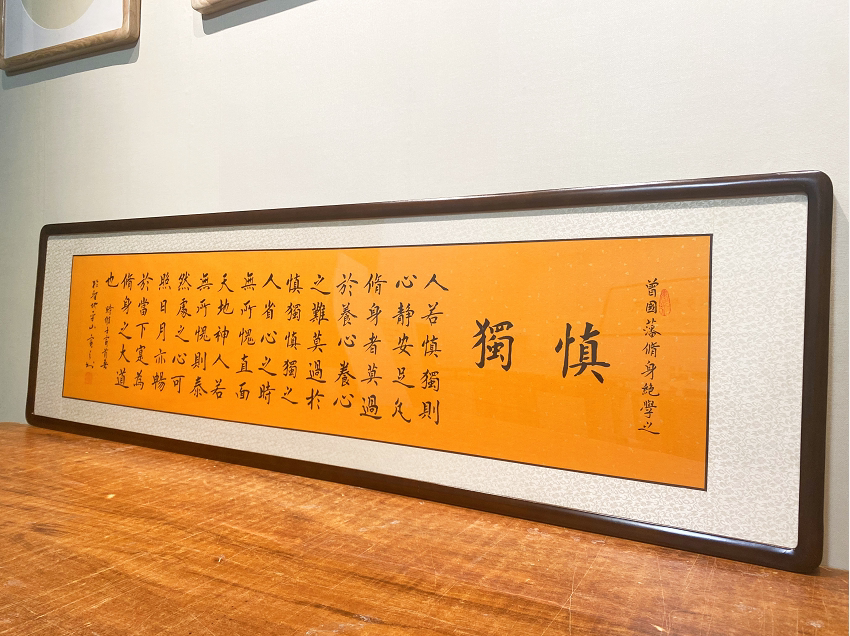 曾國藩脩身絕學之
慎獨
人若慎獨則
心靜安足凡
脩身者莫過
於養心養心
之難莫過於
慎獨慎獨之
人省心之時
無所愧直面
天地神人若
無所愧則泰
然處之心可
照日月亦暢
於當下寔為
脩身之大道
也